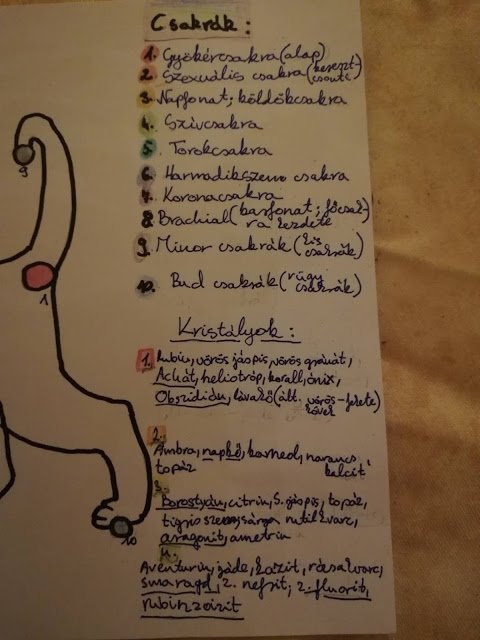 Csakrák:
1. Gyökércsakra (alap)
2. Szexuális csakra (kereszt-
csonti)
3. Napfonat; köldökcsakra
4. Szívcsakra
5. Torokcsakra
6. Harmadikszem csakra
7. Koronacsakra
8. Brachial (karfonat; főcsak-
ra kezdete
9. Minor csakrák (kis
csakrák)
10. Bud csakrák (rügy
csakrák)
9
1
10
Kristályok:
1.
Rubin, vörös jáspis, vörös gránát,
Achát, heliotróp, korall, ónix,
Obszidián, lávakő (ált. vörös-fekete
kövek)
2.
Ambra, napkő, karneol, narancs
kalcit,
topáz
3.
Borostyán, citrin, s. jáspis, topáz,
tigrisszem, sárga rutilkvarc,
aragonit, ametrin
4.
Aventurin, jáde, rózsakvarc,
smaragd, z. nefrit, z. fluorit,
rubinzoizit